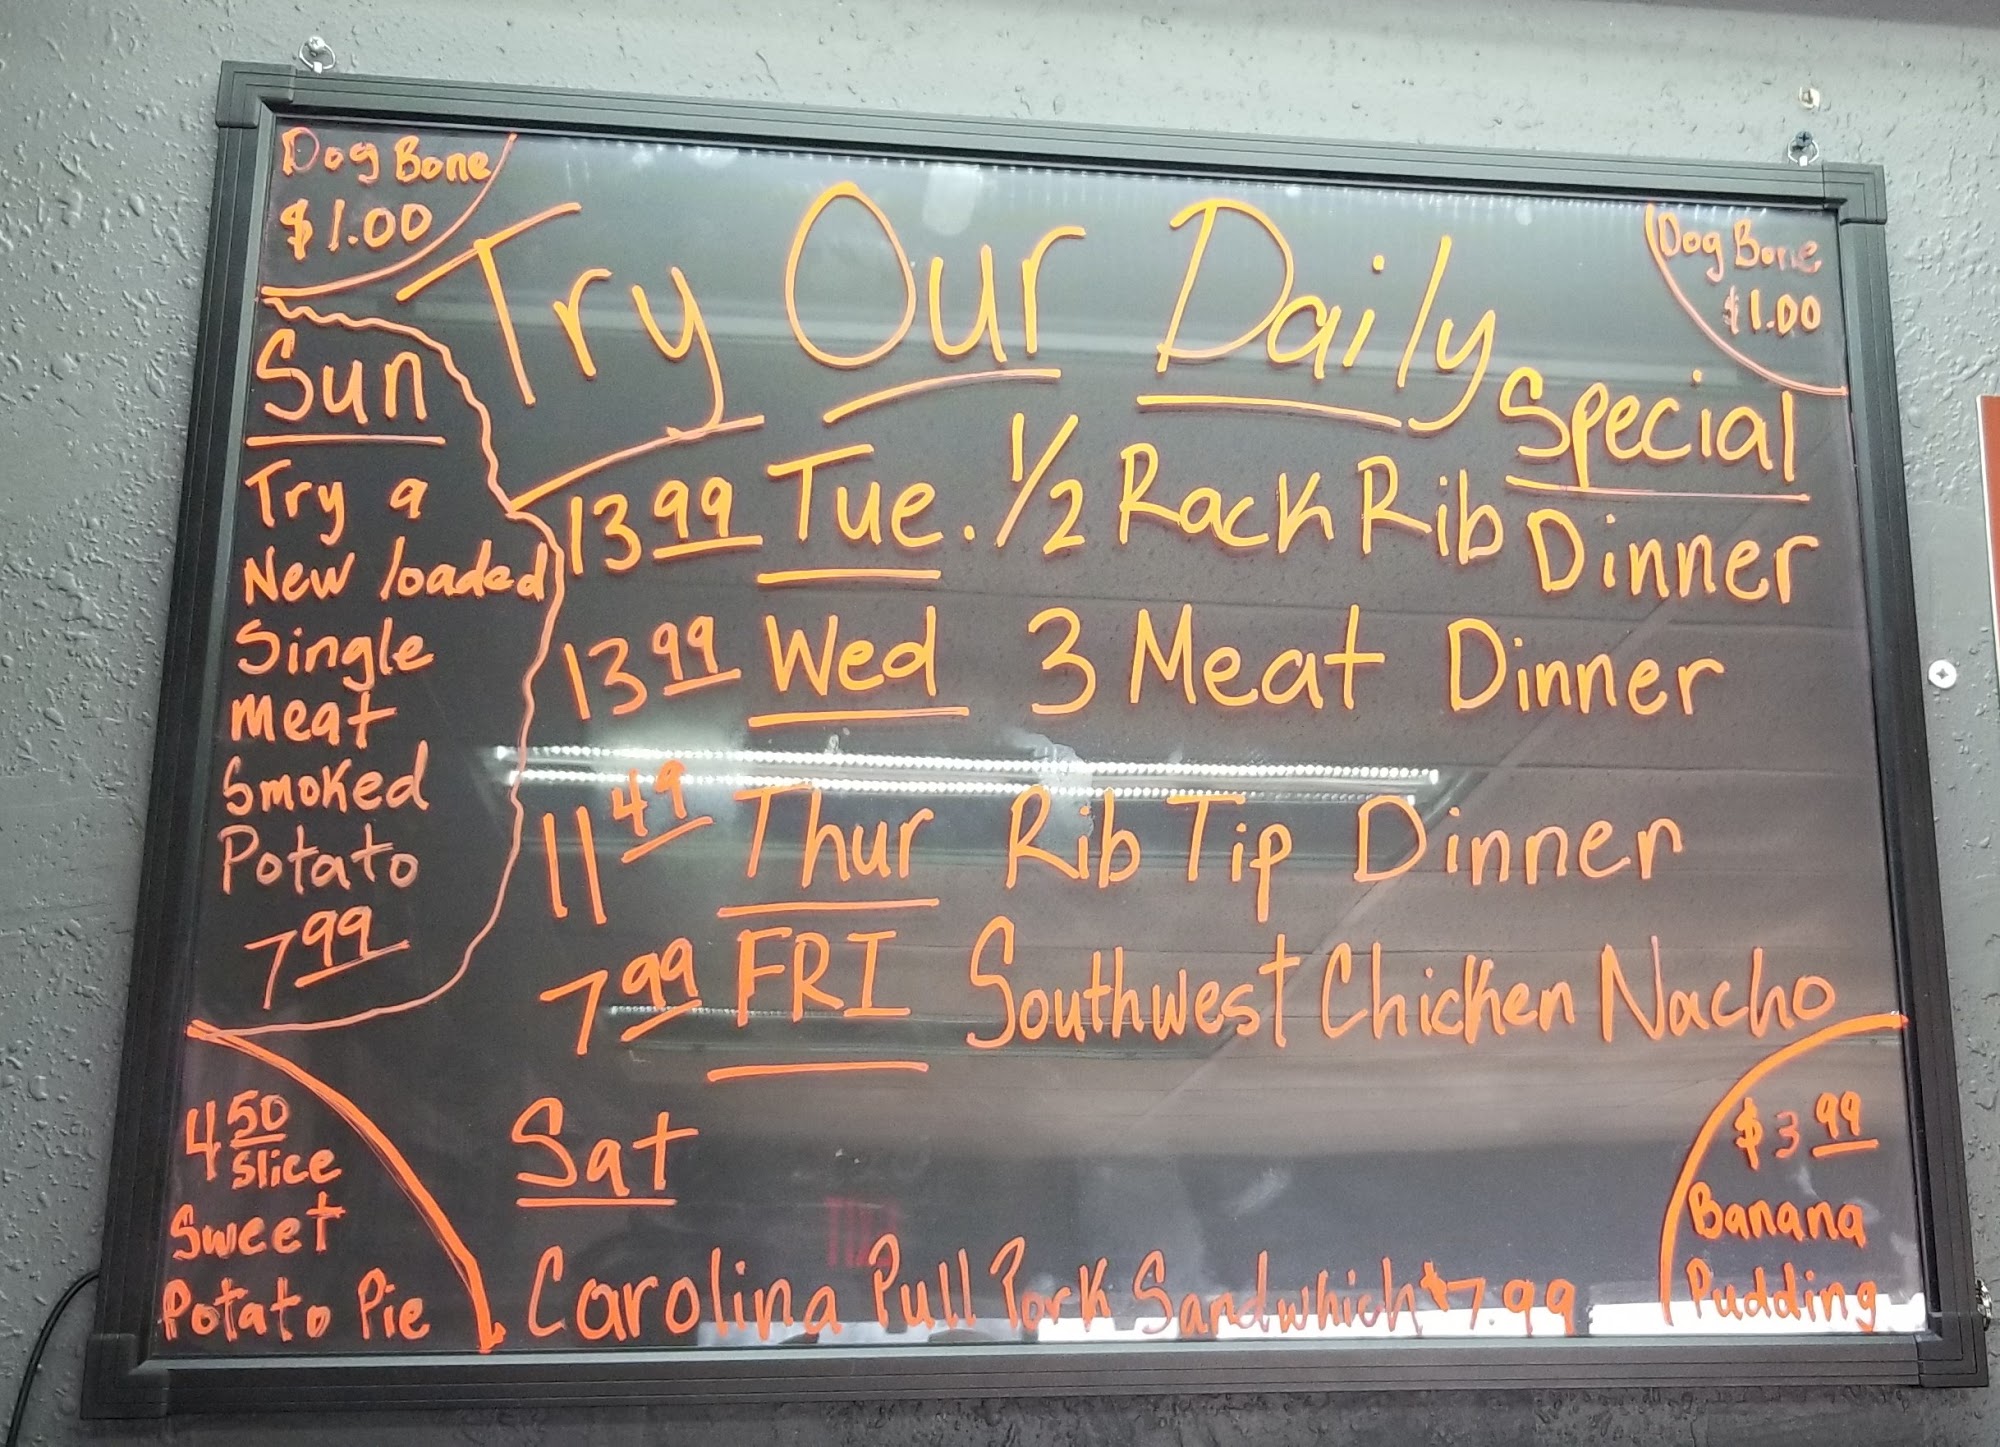 Dog Bone
$1.00
Try Our Daily
Special
Dog Bone
$1.00
Sun
Try a
New loaded
Single
meat
Smoked
Potato
7 99
13 99 Tue. 1/2 Rack Rib Dinner
13 99 Wed 3 Meat Dinner
11 49 Thur Rib Tip Dinner
7 99 FRI Southwest Chicken Nacho
Sat
Carolina Pull Pork Sandwhich $7.99
4 50
Slice
Sweet
Potato Pie
$3 99
Banana
Pudding